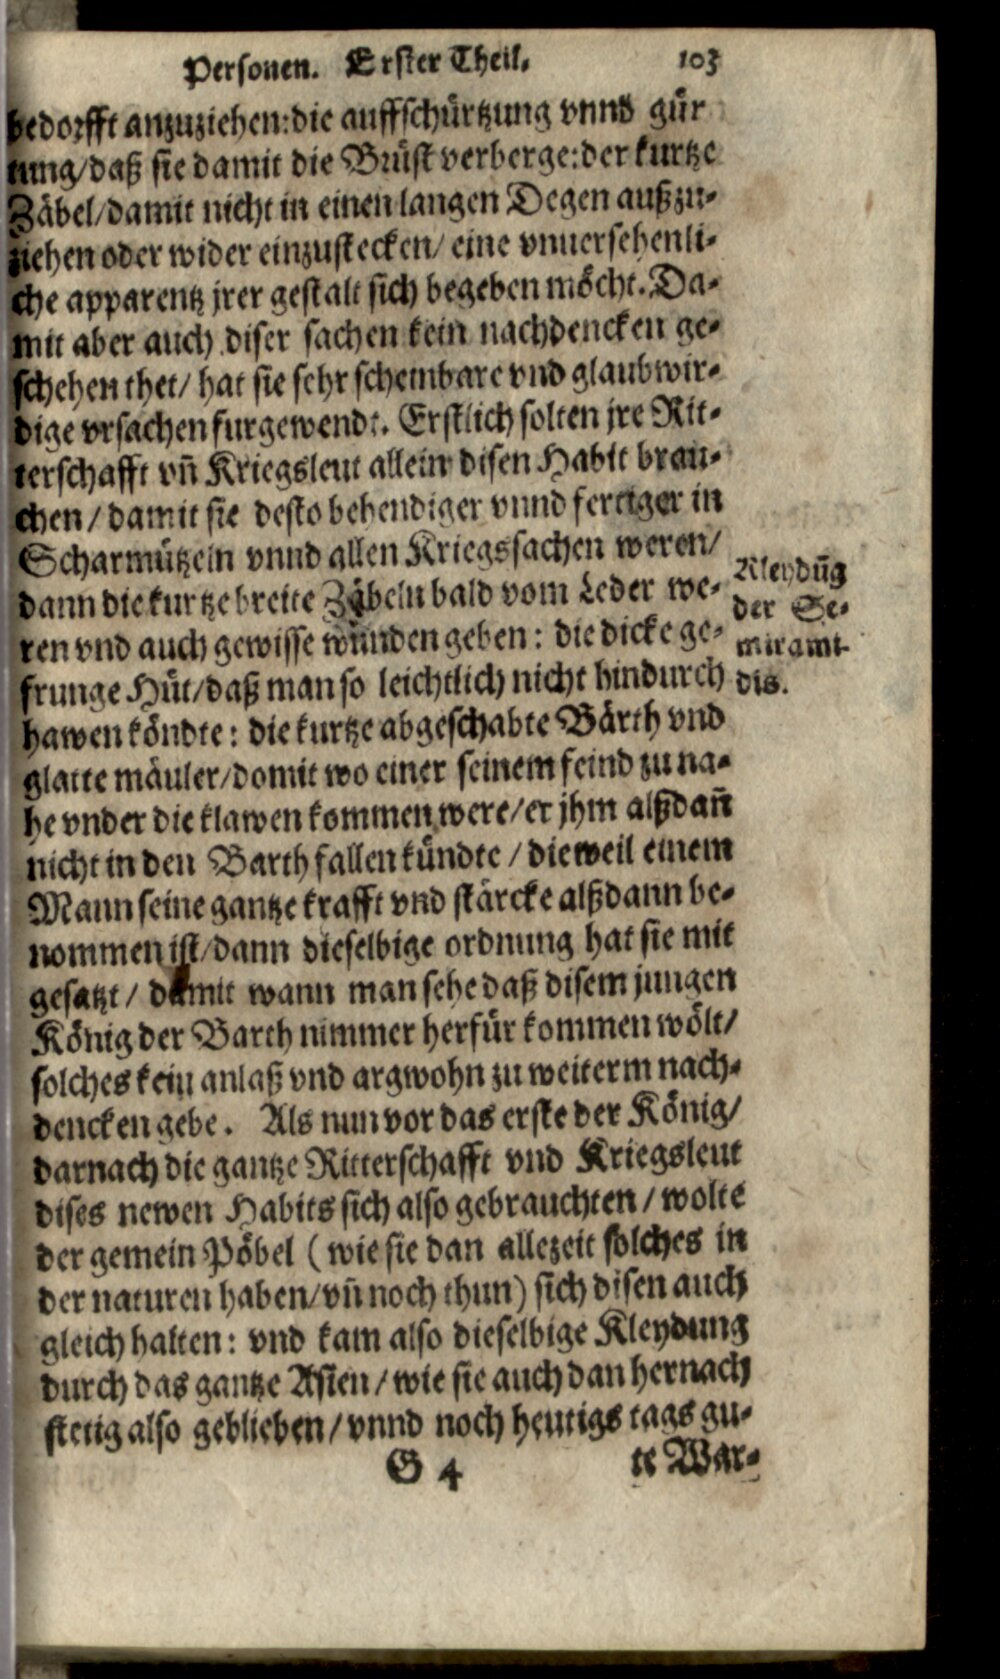 Personen. Erster Theil. 103
bedorfft anzuziehen: die auffschürtzung vnnd gür
tung/daß sie damit die Brüst verberge: der kurtze
Zäbel/damit nicht in einen langen Degen außzu-
ziehen oder wider einzustecken/ eine vnuersehenli-
che apparentz jrer gestalt sich begeben möcht. Da-
mit aber auch diser sachen kein nachdencken ge-
schehen thet/ hat sie sehr scheinbare vnd glaubwir-
dige vrsachen furgewendt. Erstlich solten jre Rit-
terschafft vñ Kriegsleut allein disen Habit brau-
chen/damit sie desto behendiger vnnd fertiger in
Scharmützeln vnnd allen Kriegssachen weren/
dann die kurtze breite Zäbeln bald vom Leder we-
ren vnd auch gewisse wunden geben: die dicke ge-
frunge Hüt/daß man so leichtlich nicht hindurch
hawen köndte: die kurtze abgeschabte Bärth vnd
glatte mäuler/domit wo einer seinem feind zu na-
he vnder die klawen kommen were/er jhm alßdañ
nicht in den Barth fallen kündte/dieweil einem
Mann seine gantze krafft vnd stärcke alßdann be-
nommen ist/dann dieselbige ordnung hat sie mit
gesatzt/ damit wann man sehe daß disem jungen
König der Barth nimmer herfür kommen wölt/
solches kein anlaß vnd argwohn zu weiterm nach-
dencken gebe. Als nun vor das erste der König/
darnach die gantze Ritterschafft vnd Kriegsleut
dises newen Habits sich also gebrauchten/wolte
der gemein Pöbel (wie sie dan allezeit solches in
der naturen haben/vñ noch thun) sich disen auch
gleich halten: vnd kam also dieselbige Kleydung
durch das gantze Asien/wie sie auch dan hernach
stetig also geblieben/vnnd noch heutigs tags gu-
G 4 te War-
Kleydũg
der Se-
mirami-
dis.